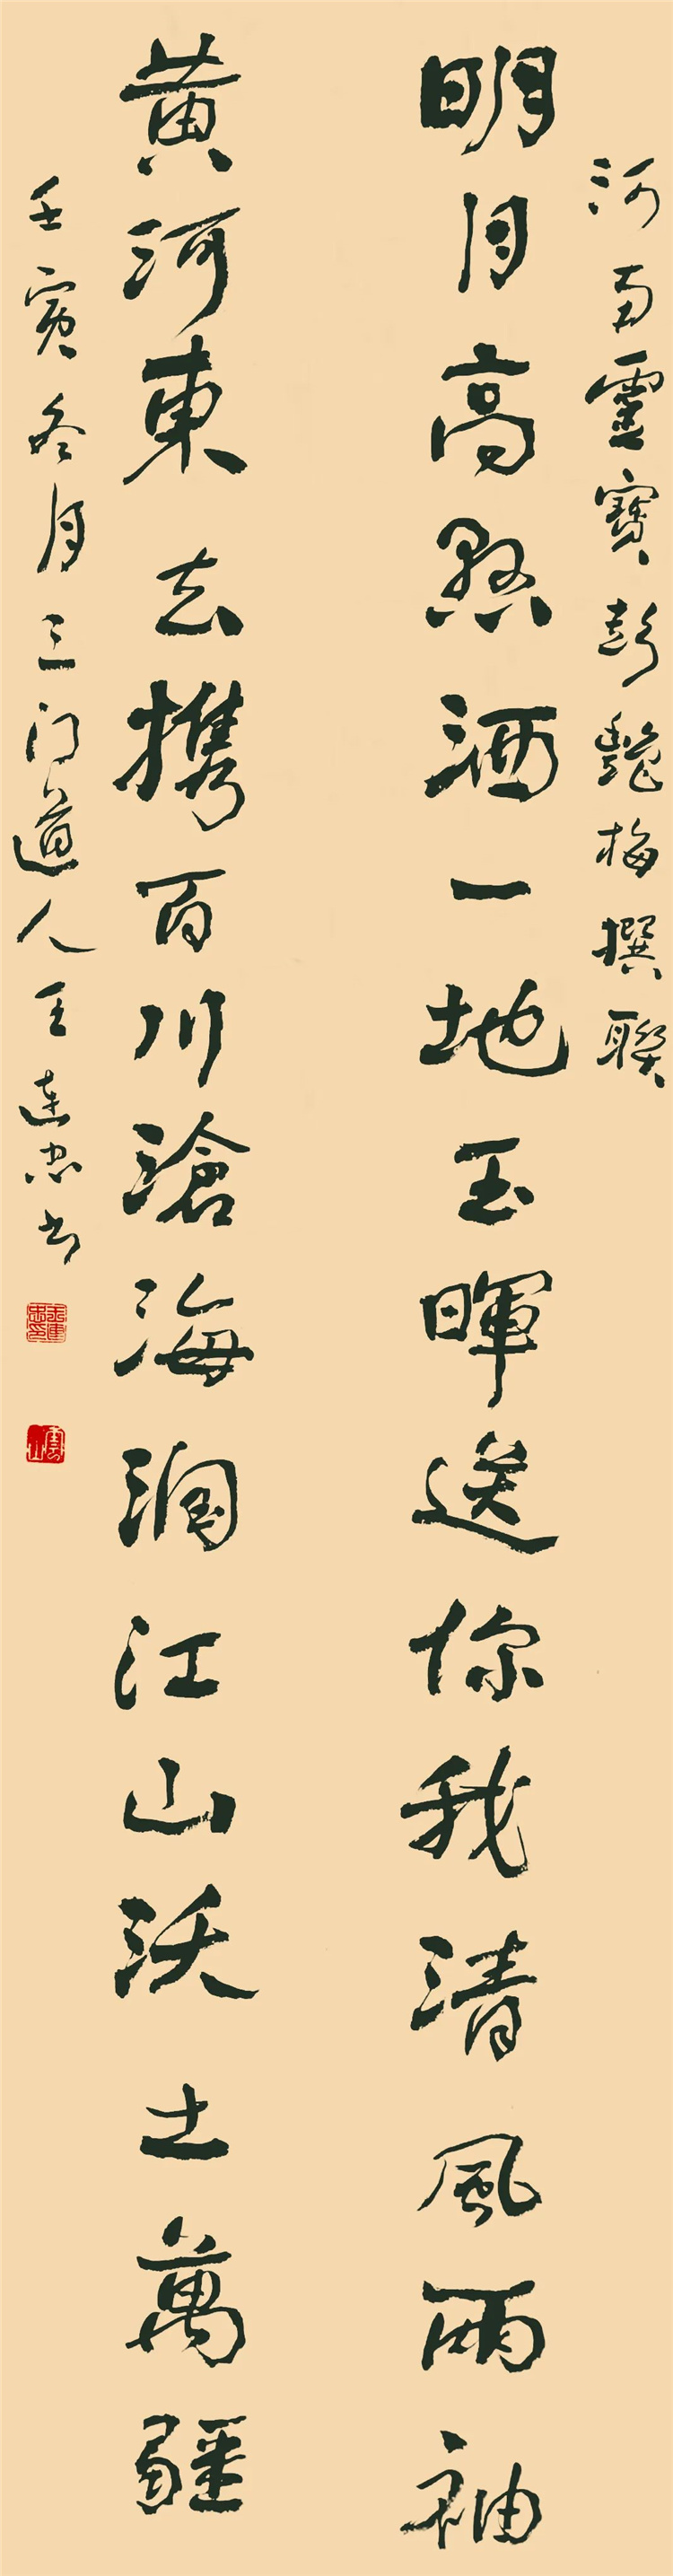 河南靈寶彭艷梅撰聯
明月高懸洒一地玉暉送你我清風兩袖
黃河東去携百川滄海潤江山沃土萬疆
壬寅冬月三门道人王連忠书